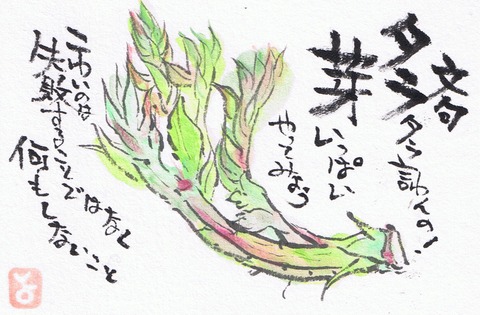 文句
タラタラ言わんの!
芽いっぱい
やってみよう
こわいのは
失敗することではなく
何もしないこと